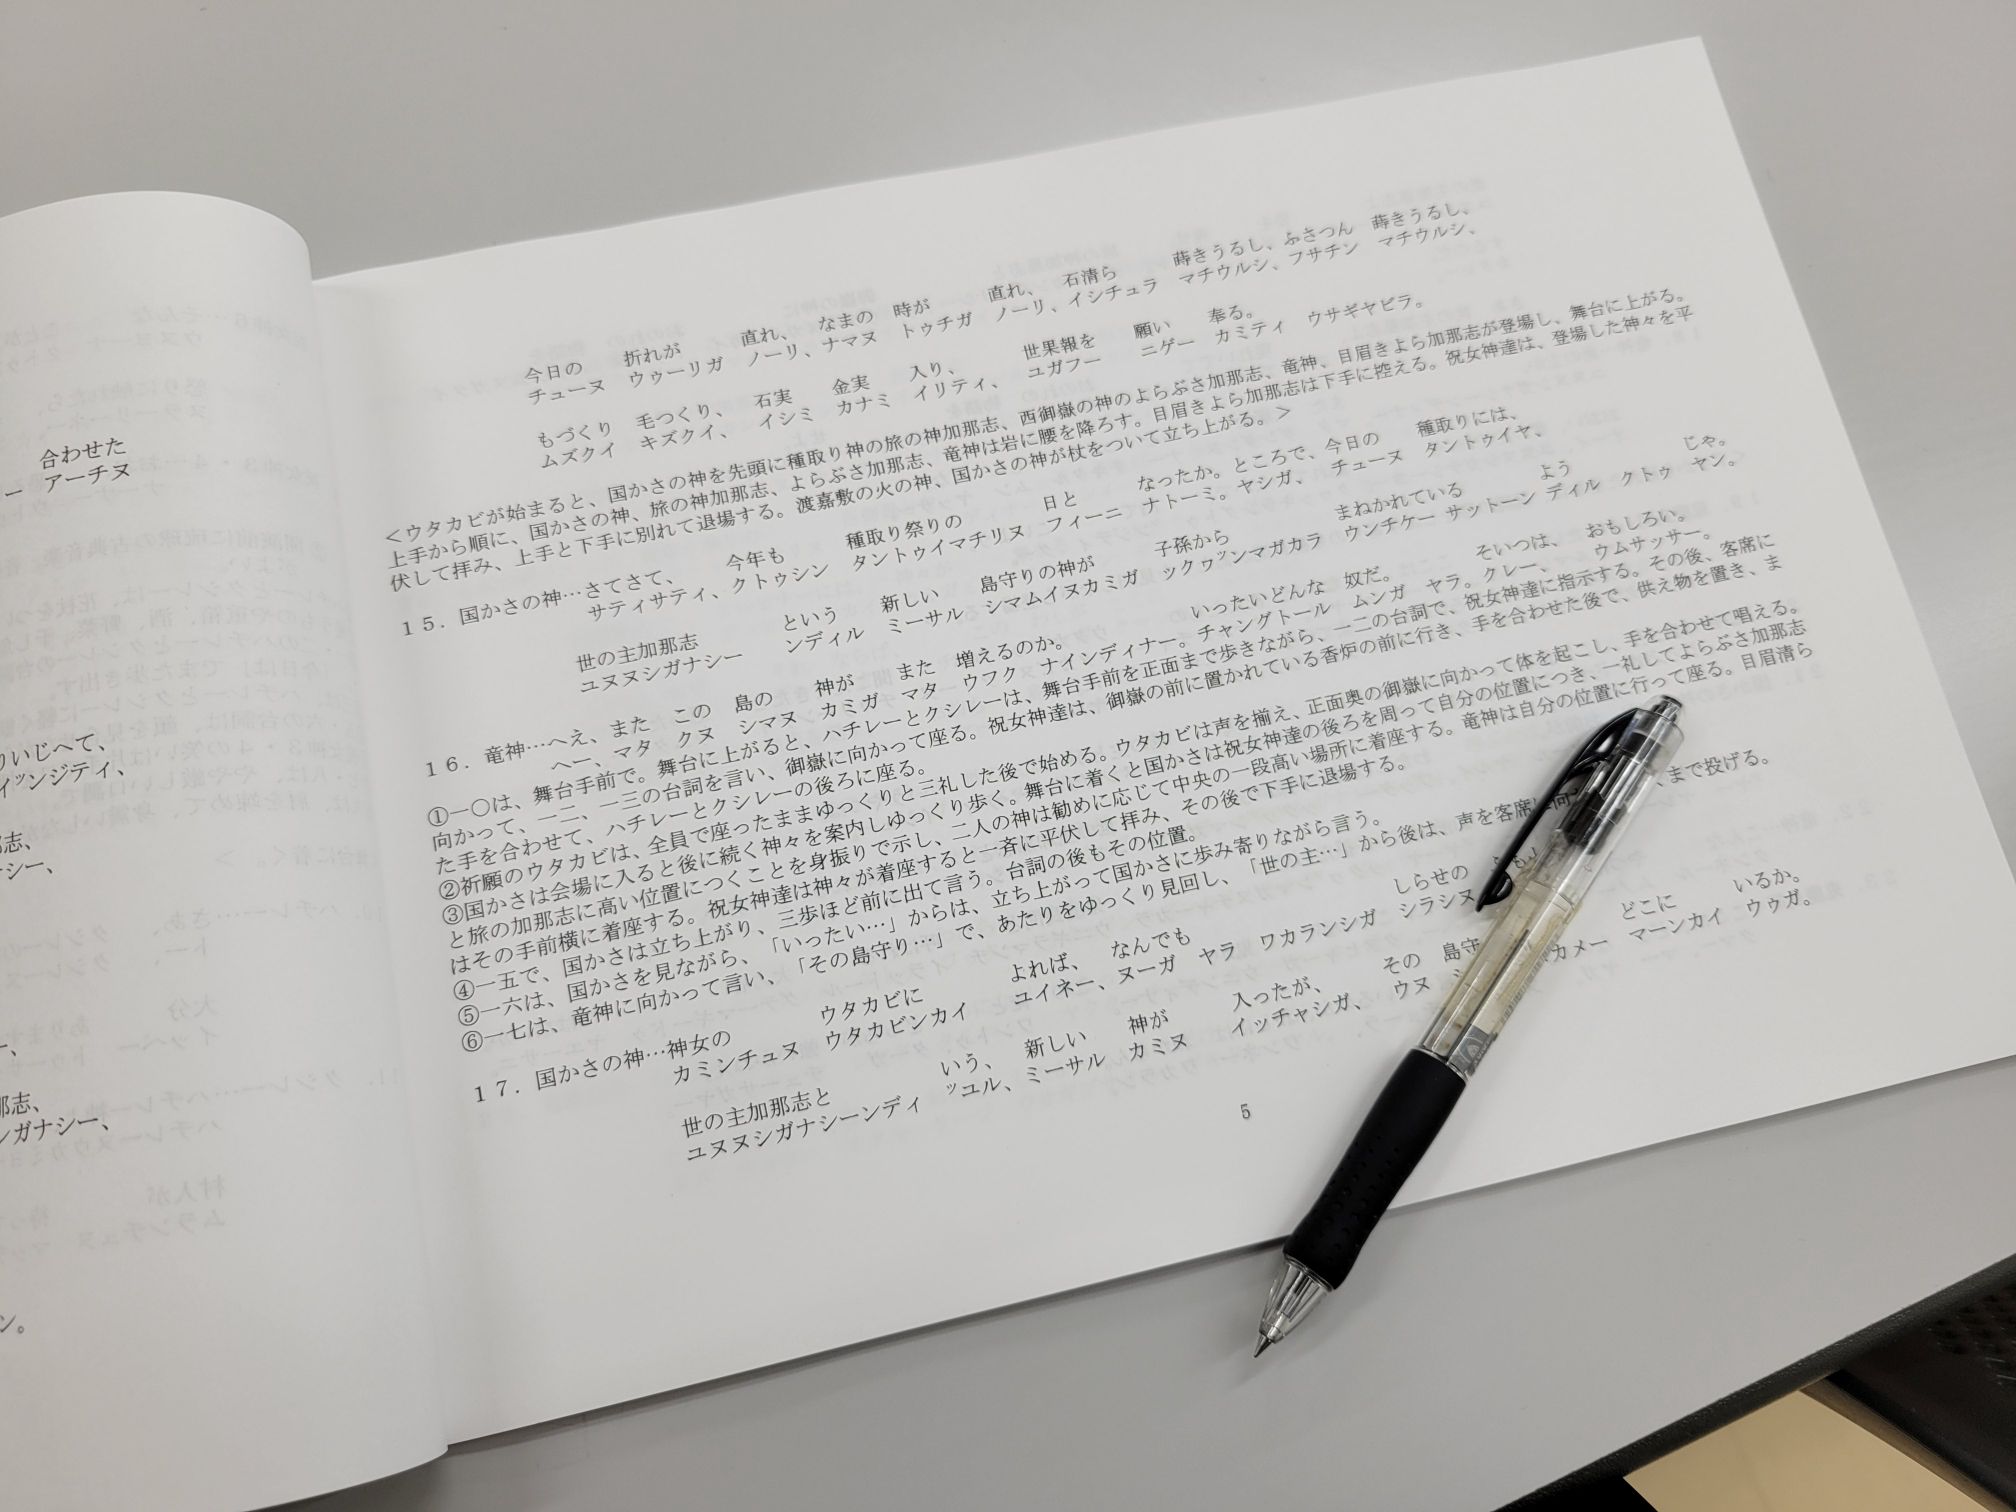 合わせた
ー　アーチヌ
りいじへて、
イッンジティ、
那志、
ナシー、
那志、
ンガナシー、
ン。
今日の　折れが　直れ、　なまの　時が　直れ、　石清ら　蒔きうるし、ふさつん　蒔きうるし、
チューヌ　ウゥーリガ　ノーリ、ナマヌ　トゥチガ　ノーリ、イシチュラ　マチウルシ、フサチン　マチウルシ、
もづくり　毛つくり、　石実　金実　入り、　世果報を　願い　奉る。
ムズクイ　キズクイ、　イシミ　カナミ　イリティ、　ユガフー　ニゲー　カミティ　ウサギヤビラ。
＜ウタカビが始まると、国かさの神を先頭に種取り神の旅の神加那志、西御嶽の神のよらぶさ加那志、竜神、目眉きよら加那志が登場し、舞台に上がる。
上手から順に、国かさの神、旅の神加那志、よらぶさ加那志、竜神は岩に腰を降ろす。目眉きよら加那志は下手に控える。祝女神達は、登場した神々を平
伏して拝み、上手と下手に別れて退場する。渡嘉敷の火の神、国かさの神が杖をついて立ち上がる。＞
１５．国かさの神…さてさて、　今年も　種取り祭りの　日と　なったか。ところで、今日の　種取りには、
サティサティ、クトゥシン　タントゥイマチリヌ　フィーニ　ナトーミ。ヤシガ、　チューヌ　タントゥイヤ、
世の主加那志　という　新しい　島守りの神が　子孫から　まねかれている　よう　じゃ。
ユヌヌシガナシー　ンディル　ミーサル　シマムイヌカミガ　ックヮッンマガカラ　ウンチケー　サットーン　ディル　クトゥ　ヤン。
１６．竜神…へえ、また　この　島の　神が　また　増えるのか。　いったいどんな　奴だ。　そいつは、　おもしろい。
ヘー、マタ　クヌ　シマヌ　カミガ　マタ　ウフク　ナインディナー。チャングトール　ムンガ　ヤラ。クレー、　ウムサッサー。
①一〇は、舞台手前で。舞台に上がると、ハチレーとクシレーは、舞台手前を正面まで歩きながら、一二の台詞で、祝女神達に指示する。その後、客席に
向かって、一二、一三の台詞を言い、御嶽に向かって座る。祝女神達は、御嶽の前に置かれている香炉の前に行き、手を合わせた後で、供え物を置き、ま
た手を合わせて、ハチレーとクシレーの後ろに座る。
②祈願のウタカビは、全員で座ったままゆっくりと三礼した後で始める。ウタカビは声を揃え、正面奥の御嶽に向かって体を起こし、手を合わせて唱える。
③国かさは会場に入ると後に続く神々を案内しゆっくり歩く。舞台に着くと国かさは祝女神達の後ろを周って自分の位置につき、一礼してよらぶさ加那志
と旅の加那志に高い位置につくことを身振りで示し、二人の神は勧めに応じて中央の一段高い場所に着座する。竜神は自分の位置に行って座る。目眉清ら
はその手前横に着座する。祝女神達は神々が着座すると一斉に平伏して拝み、その後で下手に退場する。
④一五で、国かさは立ち上がり、三歩ほど前に出て言う。台詞の後もその位置。
⑤一六は、国かさを見ながら、「いったい…」からは、立ち上がって国かさに歩み寄りながら言う。
⑥一七は、竜神に向かって言い、「その島守り…」で、あたりをゆっくり見回し、「世の主…」から後は、声を客席に向 まで投げる。
１７．国かさの神…神女の　ウタカビに　よれば、　なんでも　しらせの
カミンチュヌ　ウタカビンカイ　ユイネー、ヌーガ　ヤラ　ワカランシガ　シラシヌ
世の主加那志と　いう、　新しい　神が　入ったが、　その　島守 どこに　いるか。
ユヌヌシガナシーンディ　ッユル、ミーサル　カミヌ　イッチャシガ、　ウヌ カメー　マーンカイ　ウゥガ。
5